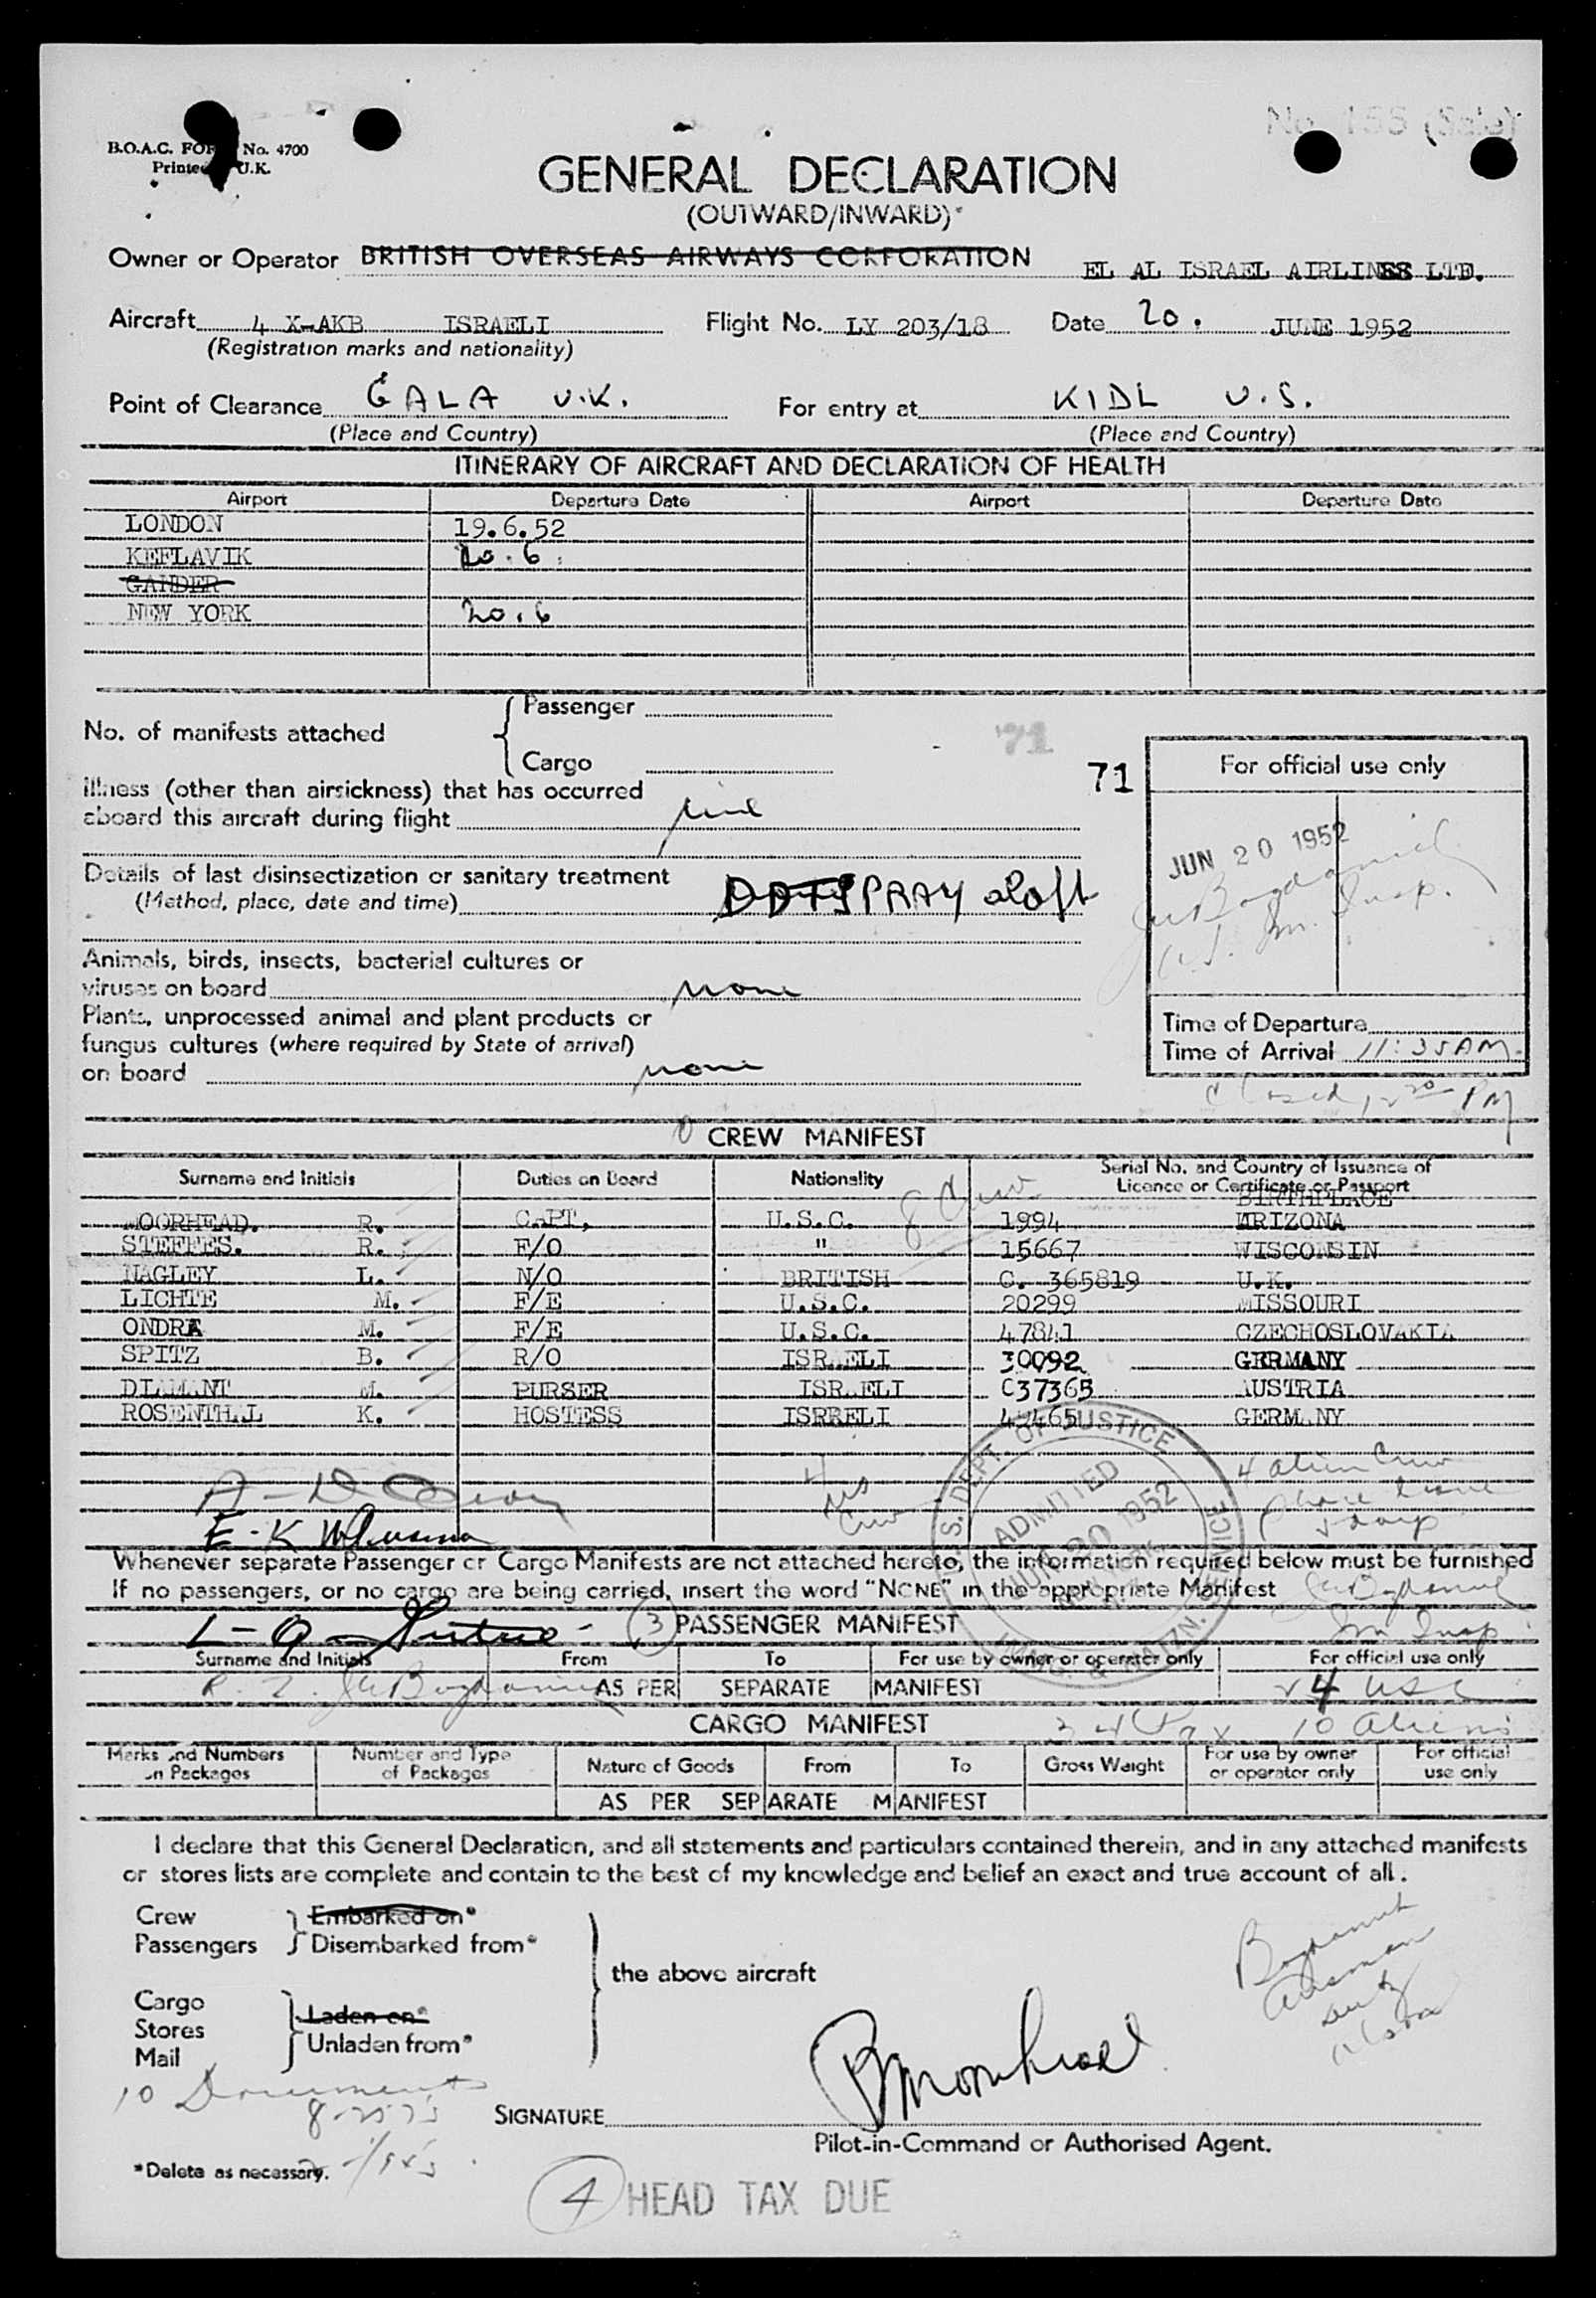 No. 
B.O.A.C. FOR No. 4700
Printed U.K.
GENERAL DECLARATION
(OUTWARD/INWARD)*
Owner or Operator BRITISH OVERSEAS AIRWAYS CORPORATION EL AL ISRAEL AIRLINES LTD.
Aircraft 4 X-AKB ISRAELI Flight No. LY 203/18 Date 20. JUNE 1952
(Registration marks and nationality)
Point of Clearance GALA U.K. For entry at KIDL U.S.
(Place and Country) (Place and Country)
ITINERARY OF AIRCRAFT AND DECLARATION OF HEALTH
Airport Departure Date Airport Departure Date
LONDON 19.6.52
KEFLAVIK 20.6.
GANDER
NEW YORK 20.6
No. of manifests attached
Passenger
Cargo
71
71
Illness (other than airsickness) that has occurred
aboard this aircraft during flight
Details of last disinsectization or sanitary treatment
(Method, place, date and time) SPRAY aloft
Animals, birds, insects, bacterial cultures or
viruses on board none
Plants, unprocessed animal and plant products or
fungus cultures (where required by State of arrival)
on board none
For official use only
JUN 20 1952
Time of Departure
Time of Arrival 11:35 AM.
Closed 12 20 PM
CREW MANIFEST
Surname and Initials Duties on Board Nationality Serial No. and Country of Issuance of
Licence or Certificate or Passport
BIRTHPLACE
8 Crew
MOORHEAD. R. CAPT, U.S.C. 1994 ARIZONA
STEFFES. R. F/O " 15667 WISCONSIN
NAGLEY L. N/O BRITISH C. 365819 U.K.
LICHTE M. F/E U.S.C. 20299 MISSOURI
ONDRA M. F/E U.S.C. 47841 CZECHOSLOVAKIA
SPITZ B. R/O ISRAELI 30092 GERMANY
DIAMANT M. PURSER ISRAELI C37365 AUSTRIA
ROSENTHAL K. HOSTESS ISRRELI GERMANY
4 US Crew
4 alien Crew
U.S. DEPT. OF JUSTICE
ADMITTED
JUN 20 1952
IMMIG. & NATZN. SERVICE
Whenever separate Passenger or Cargo Manifests are not attached hereto, the information required below must be furnished
If no passengers, or no cargo are being carried, insert the word "NONE" in the appropriate Manifest
3 PASSENGER MANIFEST
Surname and Initials From To For use by owner or operator only For official use only
AS PER SEPARATE MANIFEST 4 USC
CARGO MANIFEST
34 Pax 10 Aliens
Marks and Numbers on Packages Number and Type of Packages Nature of Goods From To Gross Weight For use by owner or operator only For official use only
AS PER SEPARATE MANIFEST
I declare that this General Declaration, and all statements and particulars contained therein, and in any attached manifests
or stores lists are complete and contain to the best of my knowledge and belief an exact and true account of all.
Crew Embarked on*
Passengers Disembarked from*
the above aircraft
Cargo
Stores Laden on*
Mail Unladen from*
10 Documents
SIGNATURE
Pilot-in-Command or Authorised Agent.
*Delete as necessary.
4 HEAD TAX DUE